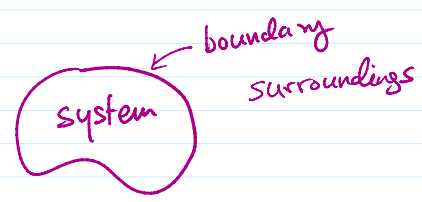 boundary
surroundings
system